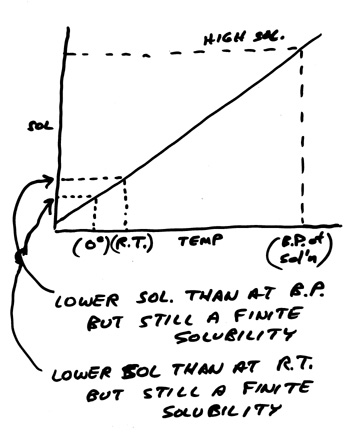 HIGH SOL.
SOL
(0°) (R.T.) TEMP (B.P. of
sol'n)
LOWER SOL. THAN AT B.P.
BUT STILL A FINITE
SOLUBILITY
LOWER SOL THAN AT R.T.
BUT STILL A FINITE
SOLUBILITY